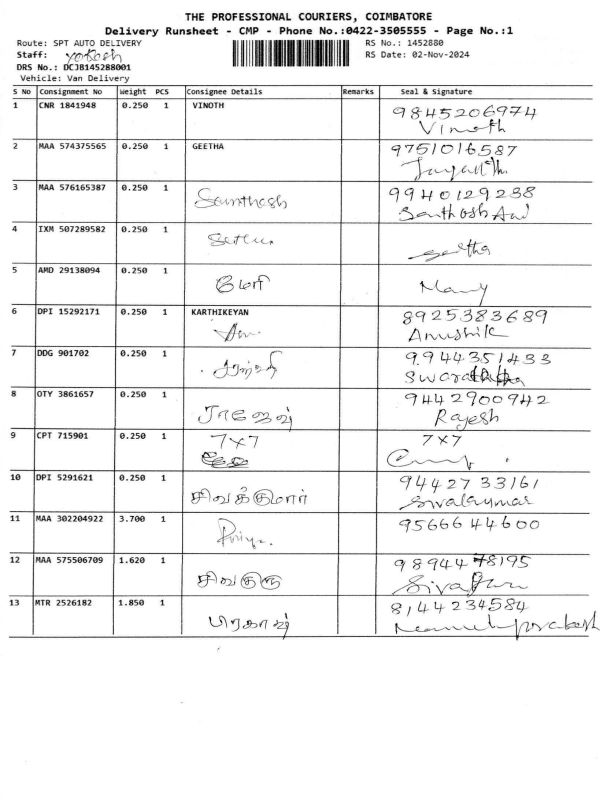 THE PROFESSIONAL COURIERS, COIMBATORE
Delivery Runsheet - CMP - Phone No.:0422-3505555 - Page No.:1
Route: SPT AUTO DELIVERY
RS No.: 1452880
Staff: Yokesh
RS Date: 02-Nov-2024
DRS No.: DCJB145288001
Vehicle: Van Delivery
S No Consignment No Weight PCS Consignee Details Remarks Seal & Signature
1 CNR 1841948 0.250 1 VINOTH 9845206974
Vinoth
2 MAA 574375565 0.250 1 GEETHA 9751016587
3 MAA 576165387 0.250 1 Santhosh 9940129238
Santhosh
4 IXM 507289582 0.250 1 Seetha
5 AMD 29138094 0.250 1 மேரி Mary
6 DPI 15292171 0.250 1 KARTHIKEYAN 8925383689
Anushik
7 DDG 901702 0.250 1 9944351433
8 OTY 3861657 0.250 1 ராஜேஷ் 9442900942
Rajesh
9 CPT 715901 0.250 1 7x7 7x7
10 DPI 5291621 0.250 1 சிவக்குமார் 9442733161
Sivakumar
11 MAA 302204922 3.700 1 Priya 9566644600
12 MAA 575506709 1.620 1 சிவகுரு 9894478195
13 MTR 2526182 1.850 1 பிரகாஷ் 8144234584
prakash